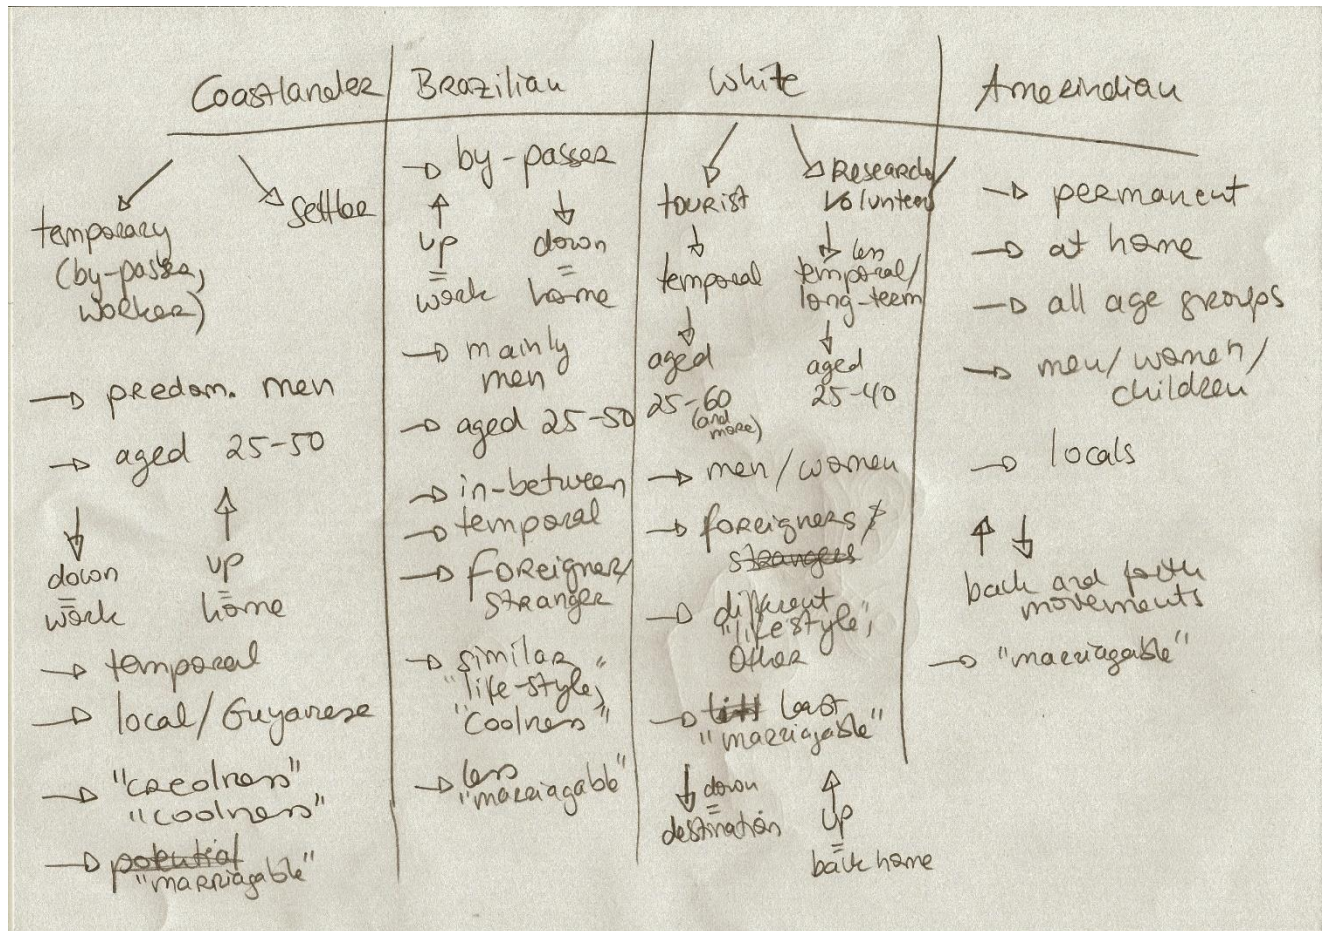 Coastlander
temporary
(by-passer,
worker)
settler
→ predom. men
→ aged 25-50
↓
down
=
work
↑
up
=
home
→ temporal
→ local/Guyanese
→ "creolness"
"coolness"
→ potential
"marriagable"
Brazilian
→ by-passer
↑
up
=
work
↓
down
=
home
→ mainly
men
→ aged 25-50
→ in-between
→ temporal
→ foreigner/
stranger
→ similar
"life-style",
"coolness"
→ less
"marriagable"
White
tourist
↓
temporal
↓
aged
25-60
(and
more)
Researcher/
Volunteer
↓ less
temporal/
long-term
↓
aged
25-40
→ men/women
→ foreigners/
strangers
→ different
"lifestyle",
Other
→ least
"marriagable"
↓ down
=
destination
↑
up
=
back home
Amerindian
→ permanent
→ at home
→ all age groups
→ men/women/
children
→ locals
↑ ↓
back and forth
movements
→ "marriagable"